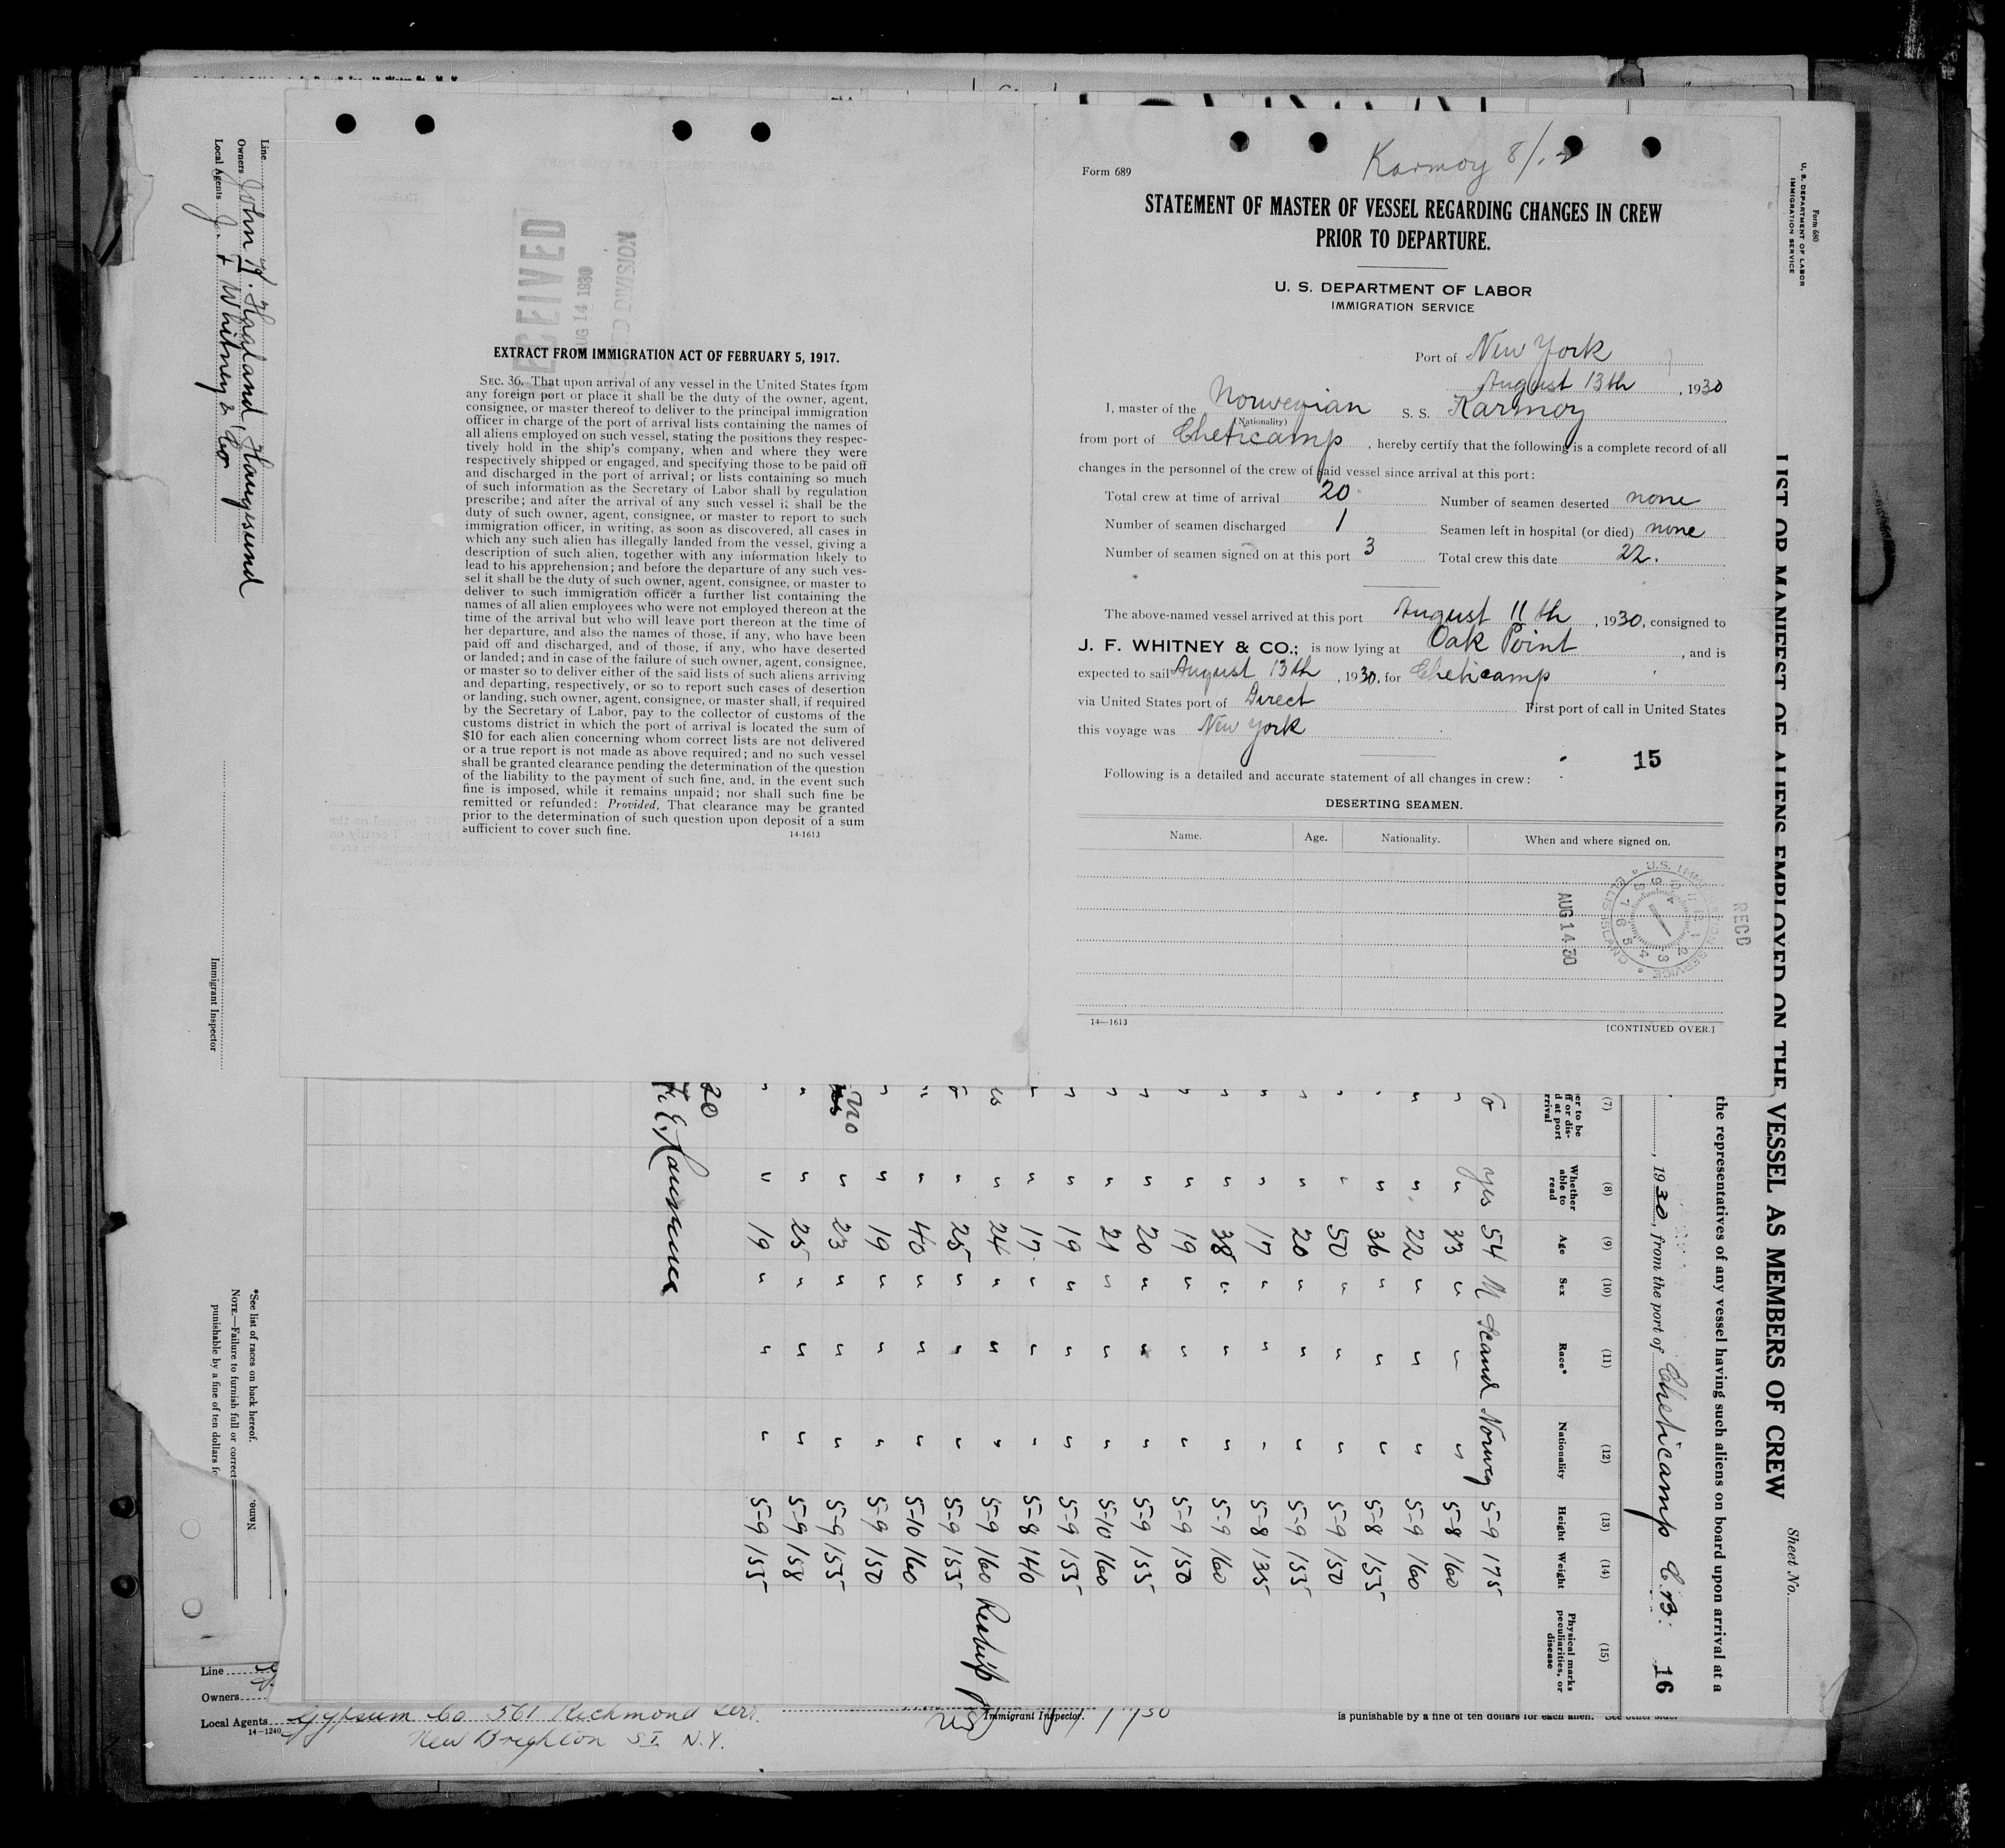 Form 689
Karmoy 8/
STATEMENT OF MASTER OF VESSEL REGARDING CHANGES IN CREW
PRIOR TO DEPARTURE.
U. S. DEPARTMENT OF LABOR
IMMIGRATION SERVICE
Port of New York
August 13th, 1930
I, master of the Norwegian S. S. Karmoy
(Nationality)
from port of Cheticamp, hereby certify that the following is a complete record of all
changes in the personnel of the crew of said vessel since arrival at this port:
Total crew at time of arrival 20 Number of seamen deserted none
Number of seamen discharged 1 Seamen left in hospital (or died) none
Number of seamen signed on at this port 3 Total crew this date 22.
The above-named vessel arrived at this port August 11th, 1930, consigned to
J. F. WHITNEY & CO.; is now lying at Oak Point, and is
expected to sail August 13th, 1930, for Cheticamp
via United States port of Direct First port of call in United States
this voyage was New York
15
Following is a detailed and accurate statement of all changes in crew:
DESERTING SEAMEN.
Name. Age. Nationality. When and where signed on.
AUG 14 30
RECD
U.S. IMMIGRATION SERVICE ELLIS ISLAND
14—1613
[CONTINUED OVER.]
RECEIVED
AUG 14 1930
DIVISION
EXTRACT FROM IMMIGRATION ACT OF FEBRUARY 5, 1917.
SEC. 36. That upon arrival of any vessel in the United States from
any foreign port or place it shall be the duty of the owner, agent,
consignee, or master thereof to deliver to the principal immigration
officer in charge of the port of arrival lists containing the names of
all aliens employed on such vessel, stating the positions they respec-
tively hold in the ship's company, when and where they were
respectively shipped or engaged, and specifying those to be paid off
and discharged in the port of arrival; or lists containing so much
of such information as the Secretary of Labor shall by regulation
prescribe; and after the arrival of any such vessel it shall be the
duty of such owner, agent, consignee, or master to report to such
immigration officer, in writing, as soon as discovered, all cases in
which any such alien has illegally landed from the vessel, giving a
description of such alien, together with any information likely to
lead to his apprehension; and before the departure of any such ves-
sel it shall be the duty of such owner, agent, consignee, or master to
deliver to such immigration officer a further list containing the
names of all alien employees who were not employed thereon at the
time of the arrival but who will leave port thereon at the time of
her departure, and also the names of those, if any, who have been
paid off and discharged, and of those, if any, who have deserted
or landed; and in case of the failure of such owner, agent, consignee,
or master so to deliver either of the said lists of such aliens arriving
and departing, respectively, or so to report such cases of desertion
or landing, such owner, agent, consignee, or master shall, if required
by the Secretary of Labor, pay to the collector of customs of the
customs district in which the port of arrival is located the sum of
$10 for each alien concerning whom correct lists are not delivered
or a true report is not made as above required; and no such vessel
shall be granted clearance pending the determination of the question
of the liability to the payment of such fine, and, in the event such
fine is imposed, while it remains unpaid; nor shall such fine be
remitted or refunded: Provided, That clearance may be granted
prior to the determination of such question upon deposit of a sum
sufficient to cover such fine.
14-1613
Form 680
U. S. DEPARTMENT OF LABOR
IMMIGRATION SERVICE
LIST OR MANIFEST OF ALIENS EMPLOYED ON THE VESSEL AS MEMBERS OF CREW
Sheet No.
the representatives of any vessel having such aliens on board upon arrival at a
, 1930, from the port of Cheticamp C.B. 16
(7) (8) (9) (10) (11) (12) (13) (14) (15)
Whether able to read Age Sex Race* Nationality Height Weight Physical marks, peculiarities, or disease
yes 54 M Scand Norway 5-9 175
" 33 " " " 5-8 160
" 22 " " " 5-9 160
" 36 " " " 5-8 155
" 50 " " " 5-9 150
" 20 " " " 5-9 155
" 17 " " " 5-8 135
" 38 " " " 5-9 160
" 19 " " " 5-9 150
" 20 " " " 5-9 155
" 21 " " " 5-10 160
" 19 " " " 5-9 155
" 17 " " " 5-8 140
" 24 " " " 5-9 160
" 25 " " " 5-9 155
" 40 " " " 5-10 160
" 19 " " " 5-9 150
no " 23 " " " 5-9 155
" 25 " " " 5-9 158
" 19 " " " 5-9 155
20
Line
Owners John K. Haaland, Haugesund
Local Agents J. F. Whitney & Co
Immigrant Inspector
*See list of races on back hereof.
NOTE.—Failure to furnish full or correct
punishable by a fine of ten dollars
Name.
Line
Owners
Local Agents Gypsum Co 561 Richmond Terr.
14-1240
New Brighton S I N.Y.
Immigrant Inspector.
is punishable by a fine of ten dollars for each alien. See other side.